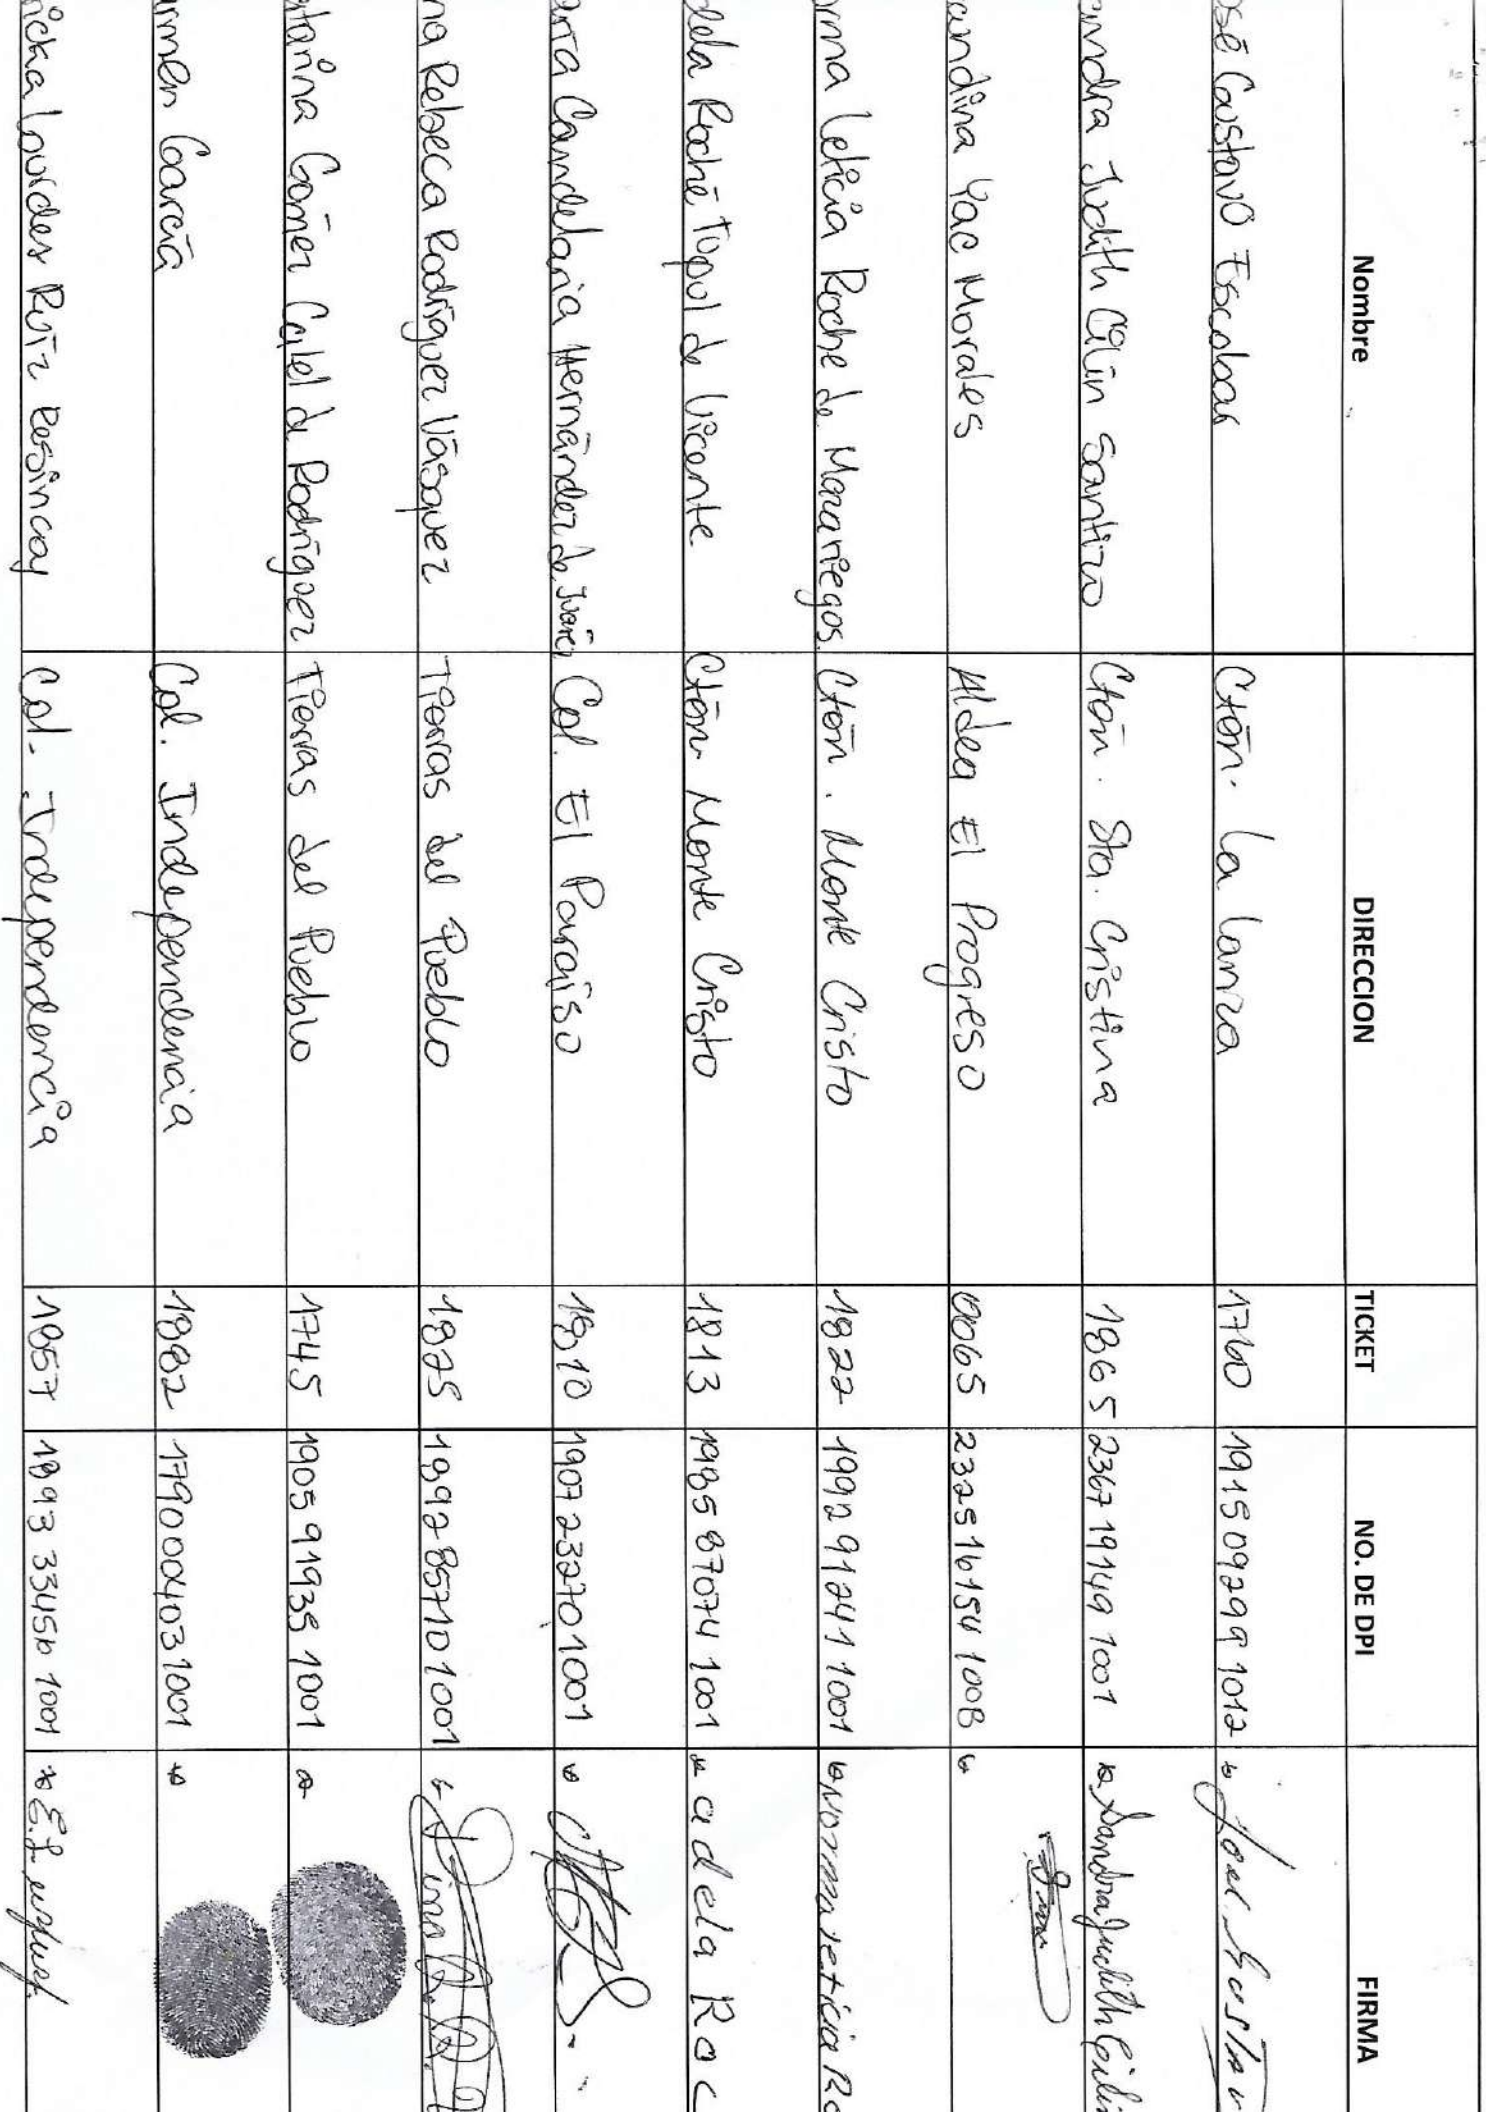 Nombre DIRECCION TICKET NO. DE DPI FIRMA
osé Gustavo Escobar Ctón. La Lanza 1760 1915 09299 1012
andra Judith Cilin Santizo Ctón. Sta. Cristina 1865 2367 19149 1001 Sandra Judith Cilin
andina Yac Morales Aldea El Progreso 0065 2325 16154 1008
orma Leticia Roche de Mazariegos Ctón. Monte Cristo 1822 1992 91241 1001 Norma Leticia Ro
dela Roché Tupul de Vicente Ctón Monte Cristo 1813 1985 87074 1001 adela Roc
arta Candelaria Hernández de Juárez Col. El Paraíso 1810 1907 23270 1001
na Rebeca Rodríguez Vásquez Tierras del Pueblo 1825 1892 85710 1001
atarina Gómez Calel de Rodríguez Tierras del Pueblo 1745 1905 91935 1001
armen García Col. Independencia 1882 1790 00403 1001
ricka Lourdes Ruíz Resinoay Col. Independencia 1857 1893 33456 1001